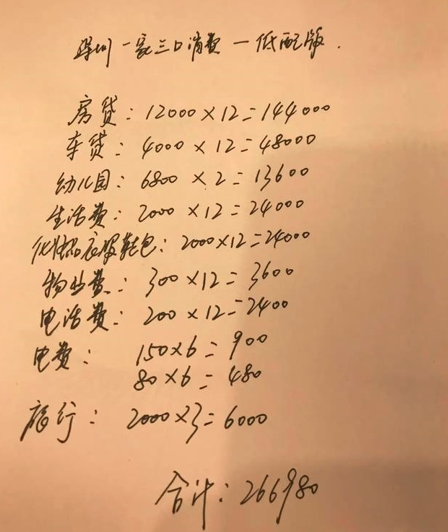 深圳一家三口消费—低配版.
房贷：12000×12=144000
车贷：4000×12=48000
幼儿园：6800×2=13600
生活费：2000×12=24000
化妆品衣服鞋包：2000×12=24000
物业费：300×12=3600
电话费：200×12=2400
电费：150×6=900
80×6=480
旅行：2000×3=6000
合计：266980